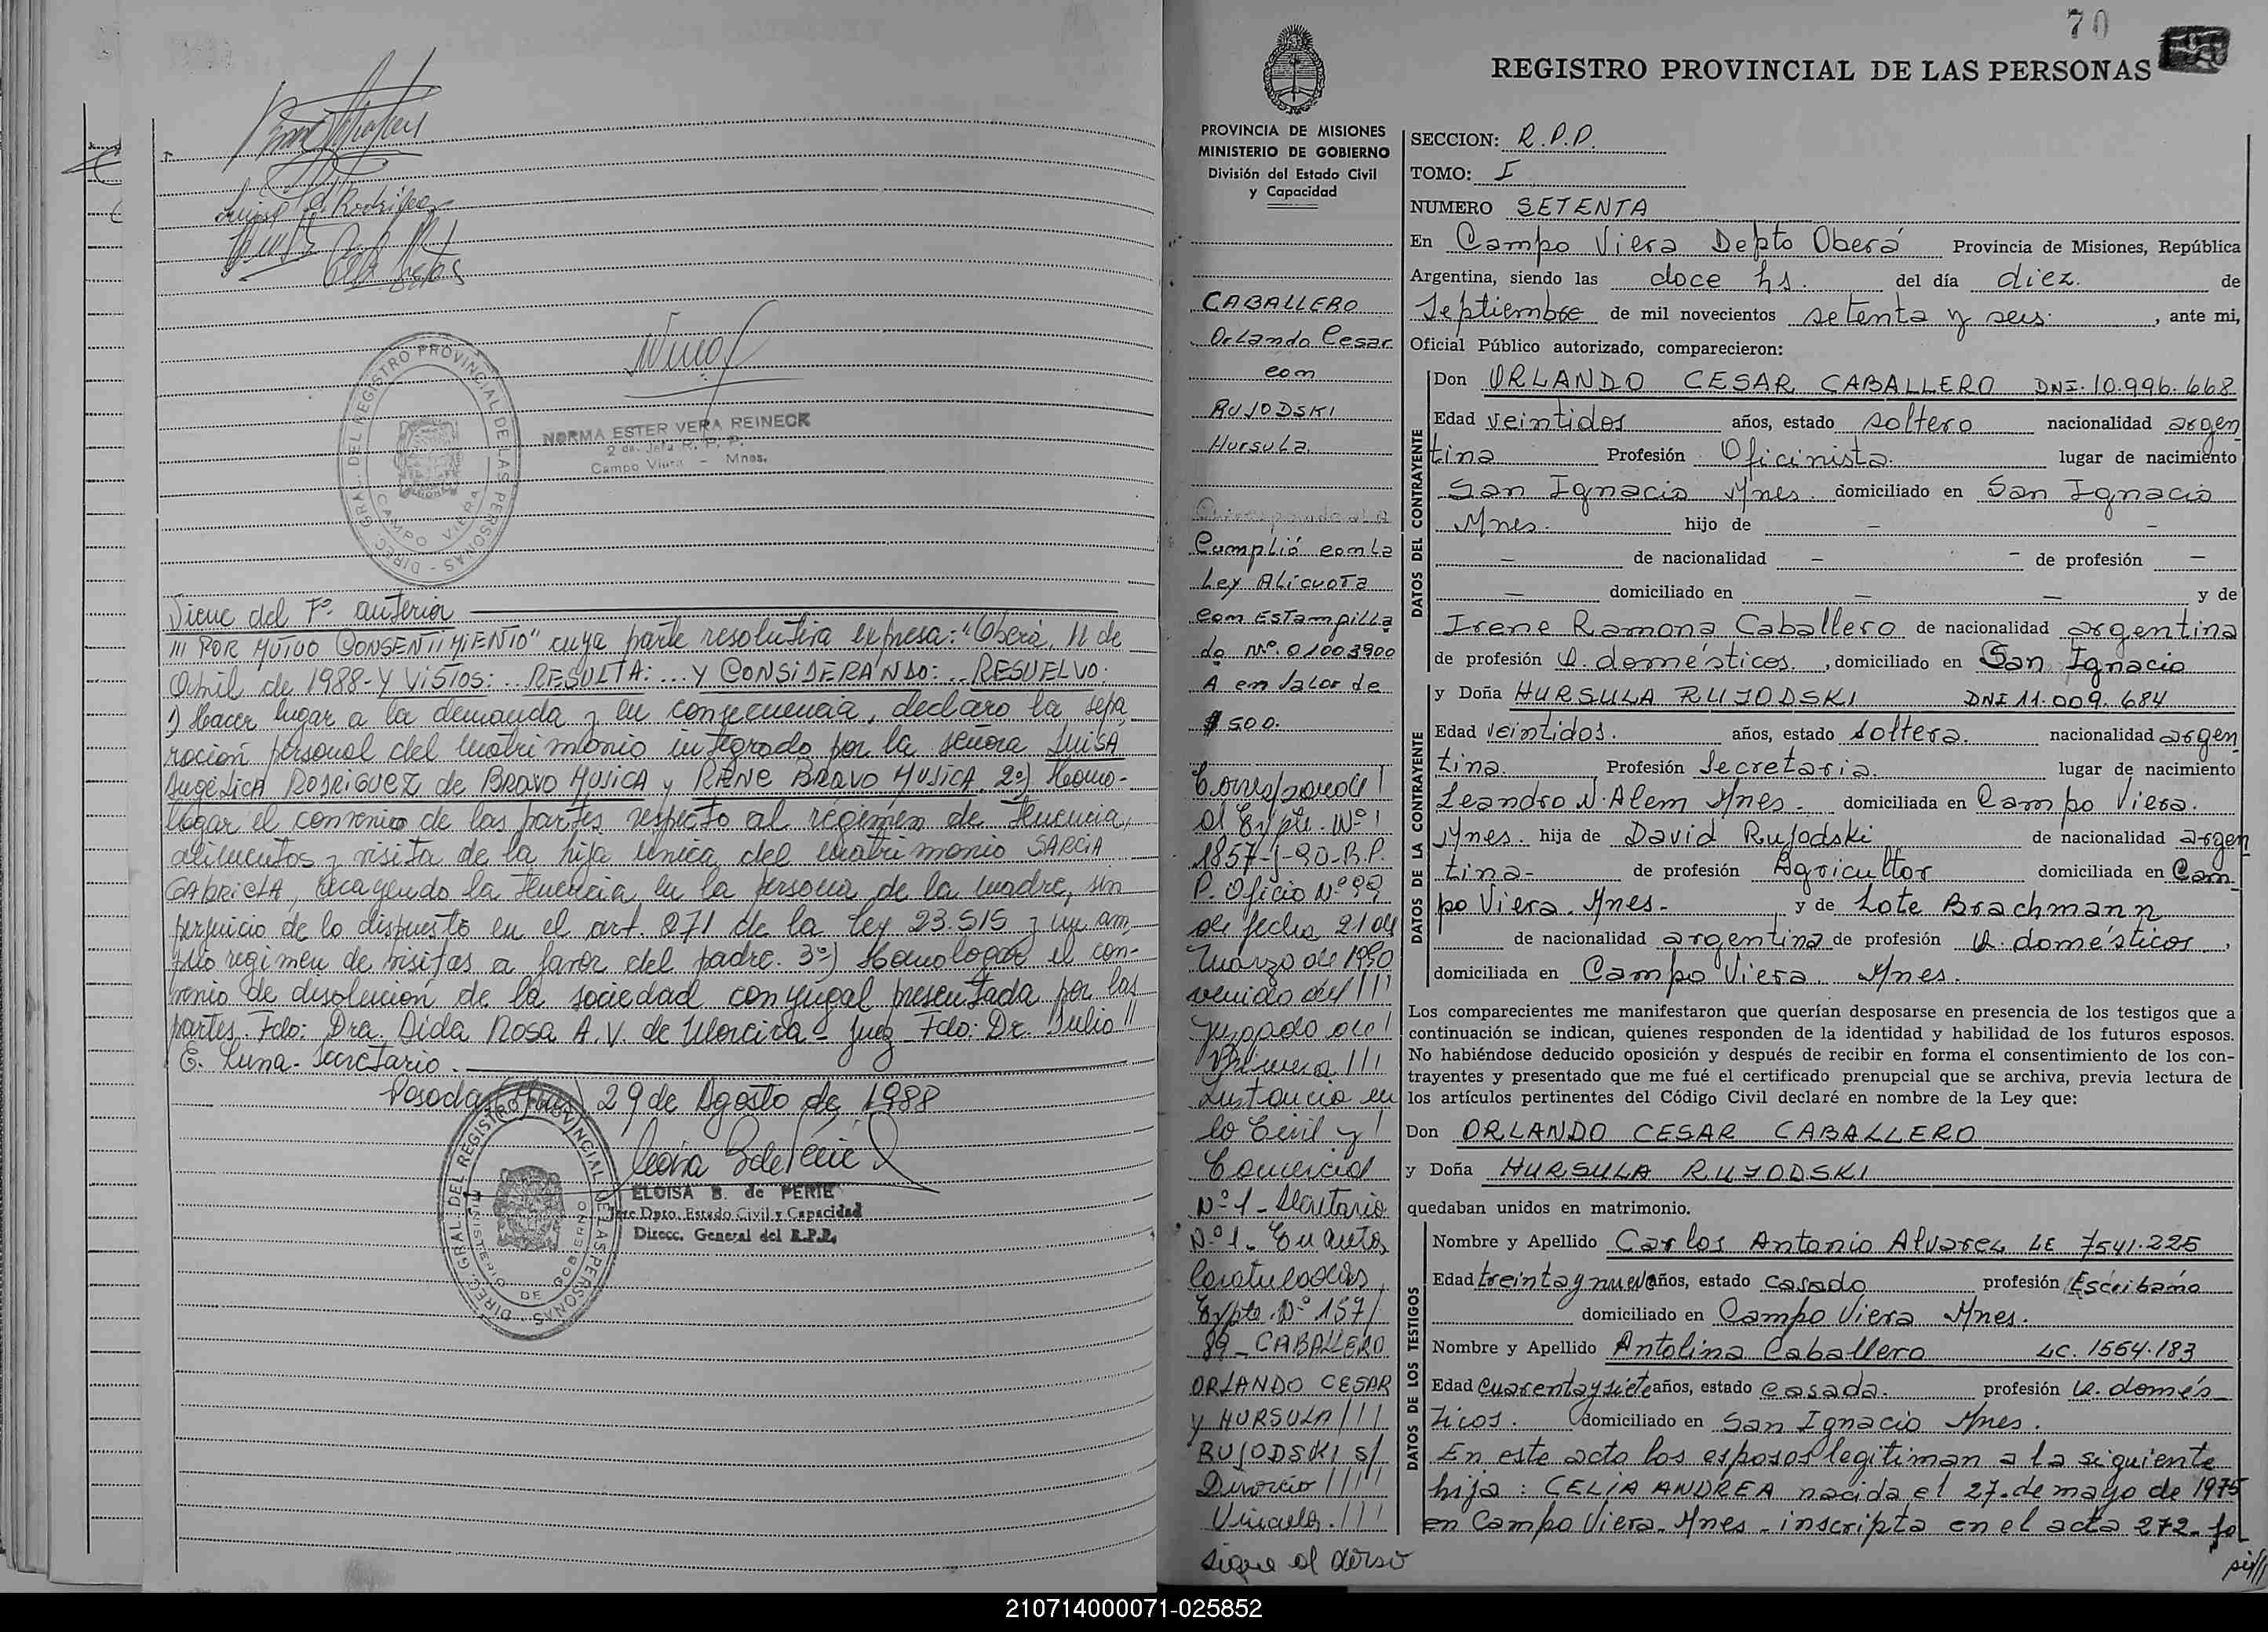 Luisa A. Rodriguez
NORMA ESTER VERA REINECK
2 da. Jefa R. P. P.
Campo Viera - Mnes.
DIREC. GRAL. DEL REGISTRO PROVINCIAL DE LAS PERSONAS -
CAMPO VIERA
Viene del Fº. anterior
/// POR MUTUO CONSENTIMIENTO" cuya parte resolutiva expresa: "Oberá, 11 de
Abril de 1988 - Y VISTOS: ... RESULTA: ... Y CONSIDERANDO: ... RESUELVO:
1) Hacer lugar a la demanda y en consecuencia, declaro la sepa
ración personal del matrimonio integrado por la señora LUISA
Angélica RODRIGUEZ de BRAVO MUJICA y RENE BRAVO MUJICA. 2º) Homo-
logar el convenio de las partes respecto al régimen de tenencia,
alimentos y visita de la hija única del matrimonio SARCIA
GABRIELA, recayendo la tenencia en la persona de la madre, sin
perjuicio de lo dispuesto en el art. 271 de la Ley 23.515 y un am,
plio regimen de visitas a favor del padre. 3º) Homologar el con-
venio de disolución de la sociedad conyugal presentada por las
partes. Fdo: Dra. Aida Rosa A. V. de - Juez - Fdo: Dr. Julio
E. Luna - Secretario.
Posadas 29 de Agosto de 1988
ELOISA B. de PERIE
Jefe Dpto. Estado Civil y Capacidad
Direcc. General del R.P.P.
DIREC. GRAL. DEL REGISTRO PROVINCIAL DE LAS PERSONAS -
MINISTERIO DE GOBIERNO
70
REGISTRO PROVINCIAL DE LAS PERSONAS
PROVINCIA DE MISIONES
MINISTERIO DE GOBIERNO
División del Estado Civil
y Capacidad
CABALLERO
Orlando Cesar
con
RUJODSKI
Hursula.
Cumplió con la
Ley Alicuota
con Estampilla
do Nº. 01003900
A en valor de
$ 500.
Corresponde /
al Expte. Nº /
1857-J-90-R.P.
P. Oficio Nº 99
de fecha 21 de
Marzo de 1990
venido del ///
Juzgado de /
Primera ///
Instancia en
lo Civil y /
Comercial
Nº 1 - Secretario
Nº 1 - En autos
Caratulados
Expte. Nº 157/
89 - CABALLERO
ORLANDO CESAR
y HURSULA ///
RUJODSKI s/
Divorcio ////
Vincular. ///
Sigue al dorso
SECCION: R.P.P.
TOMO: I
NUMERO SETENTA
En Campo Viera Depto Oberá Provincia de Misiones, República
Argentina, siendo las doce hs. del día diez. de
Septiembre de mil novecientos setenta y seis. , ante mi,
Oficial Público autorizado, comparecieron:
DATOS DEL CONTRAYENTE
Don ORLANDO CESAR CABALLERO DNI. 10.996.668
Edad veintidos años, estado soltero nacionalidad argen
tina Profesión Oficinista. lugar de nacimiento
San Ignacio Mnes. domiciliado en San Ignacio
Mnes. hijo de — —
— de nacionalidad — — de profesión —
— domiciliado en — — y de
Irene Ramona Caballero de nacionalidad argentina
de profesión Q. domésticos. , domiciliado en San Ignacio
DATOS DE LA CONTRAYENTE
y Doña HURSULA RUJODSKI DNI 11.009.684
Edad veintidos. años, estado soltera. nacionalidad argen
tina. Profesión Secretaria. lugar de nacimiento
Leandro N. Alem Mnes. domiciliada en Campo Viera.
Mnes. hija de David Rujodski de nacionalidad argen
tina- de profesión Agricultor domiciliada en Cam
po Viera. Mnes- y de Lote Brachmann
de nacionalidad argentina de profesión Q. domésticos ,
domiciliada en Campo Viera. Mnes.
Los comparecientes me manifestaron que querían desposarse en presencia de los testigos que a
continuación se indican, quienes responden de la identidad y habilidad de los futuros esposos.
No habiéndose deducido oposición y después de recibir en forma el consentimiento de los con-
trayentes y presentado que me fué el certificado prenupcial que se archiva, previa lectura de
los artículos pertinentes del Código Civil declaré en nombre de la Ley que:
Don ORLANDO CESAR CABALLERO
y Doña HURSULA RUJODSKI
quedaban unidos en matrimonio.
DATOS DE LOS TESTIGOS
Nombre y Apellido Carlos Antonio Alvarez LE 7541.225
Edad treinta y nueve años, estado casado profesión Escribano
domiciliado en Campo Viera Mnes.
Nombre y Apellido Antolina Caballero LC. 1554.183
Edad cuarenta y siete años, estado casada. profesión Q. domés
ticos. domiciliado en San Ignacio Mnes.
En este acto los esposos legitiman a la siguiente
hija: CELIA ANDREA nacida el 27 de mayo de 1975
en Campo Viera - Mnes - inscripta en el acta 272 - fo
210714000071-025852